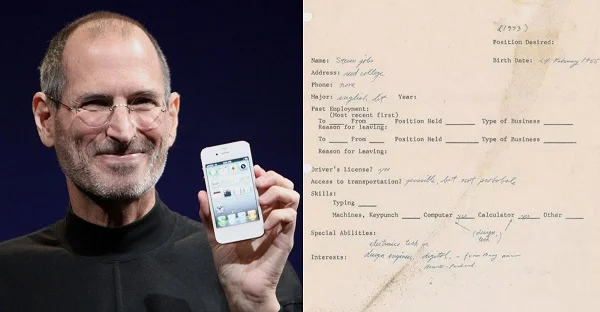 (1973)
Position Desired:
Name: Steven jobs
Birth Date: 24 February 1955
Address: reed college
Phone: none
Major: english lit Year:
Past Employment:
(Most recent first)
To ____ From ____ Position Held ____ Type of Business ____
Reason for leaving:
To ____ From ____ Position Held ____ Type of Business ____
Reason for Leaving:
Driver's license? yes
Access to transportation? possible, but not probable
Skills:
Typing ____
Machines, Keypunch ____ Computer yes Calculator yes Other ____
(design, tech)
Special Abilities:
electronics tech or
Interests:
design engineer. digital. - from Bay